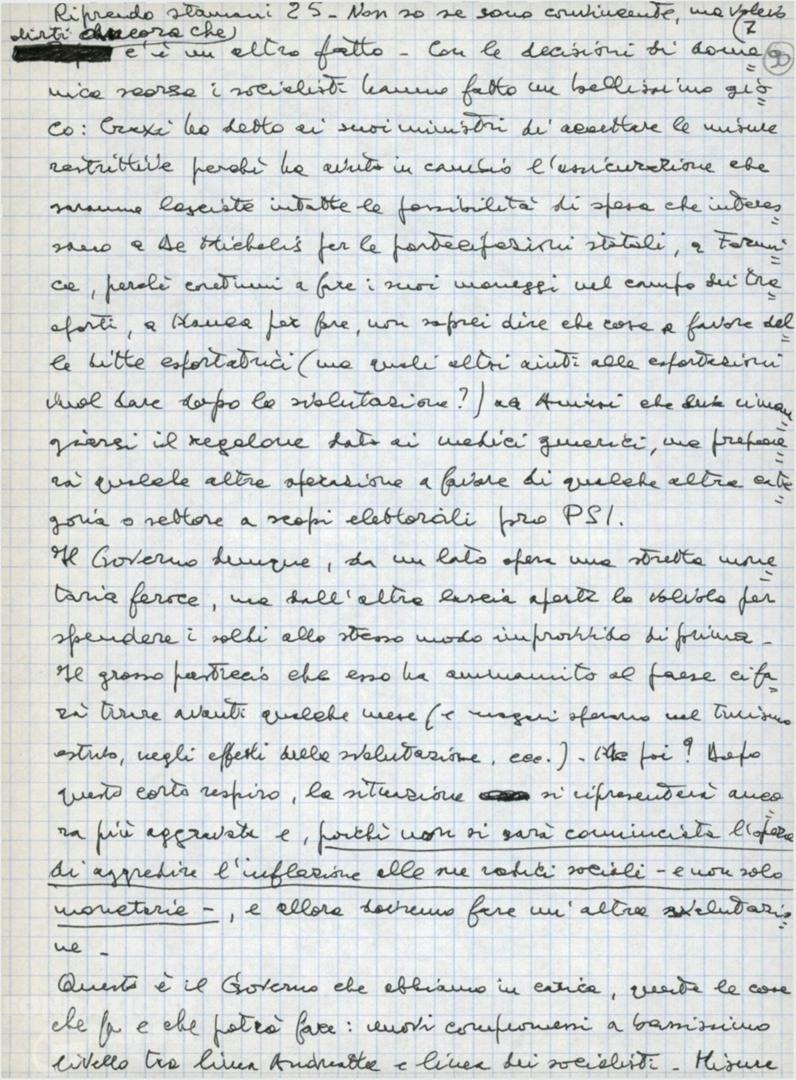 Riprendo stamani 25 - Non so se sono convincente, ma volevo
dirti ancora che) (7
c'è un altro fatto - Con le decisioni di dome= 90
nica scorsa i socialisti hanno fatto un bellissimo gio=
co: Craxi ha detto ai suoi ministri di accettare le misure
restrittive perchè ha avuto in cambio l'assicurazione che
saranno lasciate intatte le possibilità di spesa che interes=
sano a De Michelis per le partecipazioni statali, a Formi=
ca, perchè continui a fare i suoi maneggi nel campo dei tra=
sporti, a Manca per fare, non saprei dire che cosa a favore del=
le ditte esportatrici (ma quali altri aiuti alle esportazioni
vuol dare dopo la svalutazione?) ad Aniasi che deve riman=
giarsi il regalone dato ai medici generici, ma prepare=
rà qualche altra operazione a favore di qualche altra cate=
goria o settore a scopi elettorali pro PSI.
Il Governo dunque, da un lato opera una stretta mone=
taria feroce, ma dall'altra lascia aperta la valvola per
spendere i soldi allo stesso modo improvvido di prima -
Il grosso pasticcio che esso ha ammannito al paese ci fa=
rà tirare avanti qualche mese (e magari sperano nel turismo
estivo, negli effetti della svalutazione, ecc.) - Ma poi? Dopo
questo corto respiro, la situazione si ripresenterà anco=
ra più aggravata e, poichè non si sarà cominciata l'opera
di aggredire l'inflazione alle sue radici sociali - e non solo
monetarie -, e allora dovremo fare un'altra svalutazio=
ne -
Questo è il Governo che abbiamo in carica, queste le cose
che fa e che potrà fare: nuovi compromessi a bassissimo
livello tra linea Andreatta e linea dei socialisti - Misure